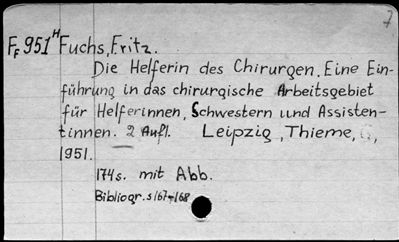 7
FF 951 H Fuchs, Fritz.
Die Helferin des Chirurgen. Eine Ein-
führung in das chirurgische Arbeitsgebiet
für Helferinnen, Schwestern und Assisten-
tinnen. 2 Aufl. Leipzig, Thieme,
1951.
174s. mit Abb.
Bibliogr. s 167-168